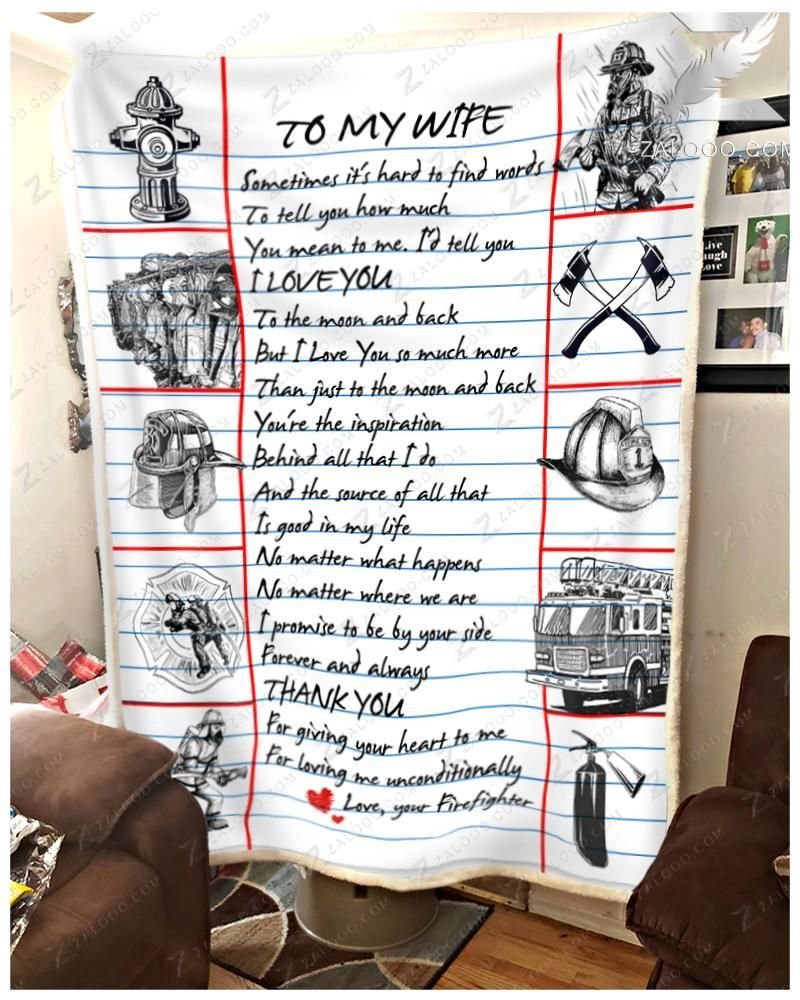 ZALOOO.COM
TO MY WIFE
Sometimes it's hard to find words
To tell you how much
You mean to me. I'd tell you
I LOVE YOU
To the moon and back
But I Love You so much more
Than just to the moon and back
You're the inspiration
Behind all that I do
And the source of all that
Is good in my life
No matter what happens
No matter where we are
I promise to be by your side
Forever and always
THANK YOU
For giving your heart to me
For loving me unconditionally
Love, your Firefighter
Live
Laugh
Love
1